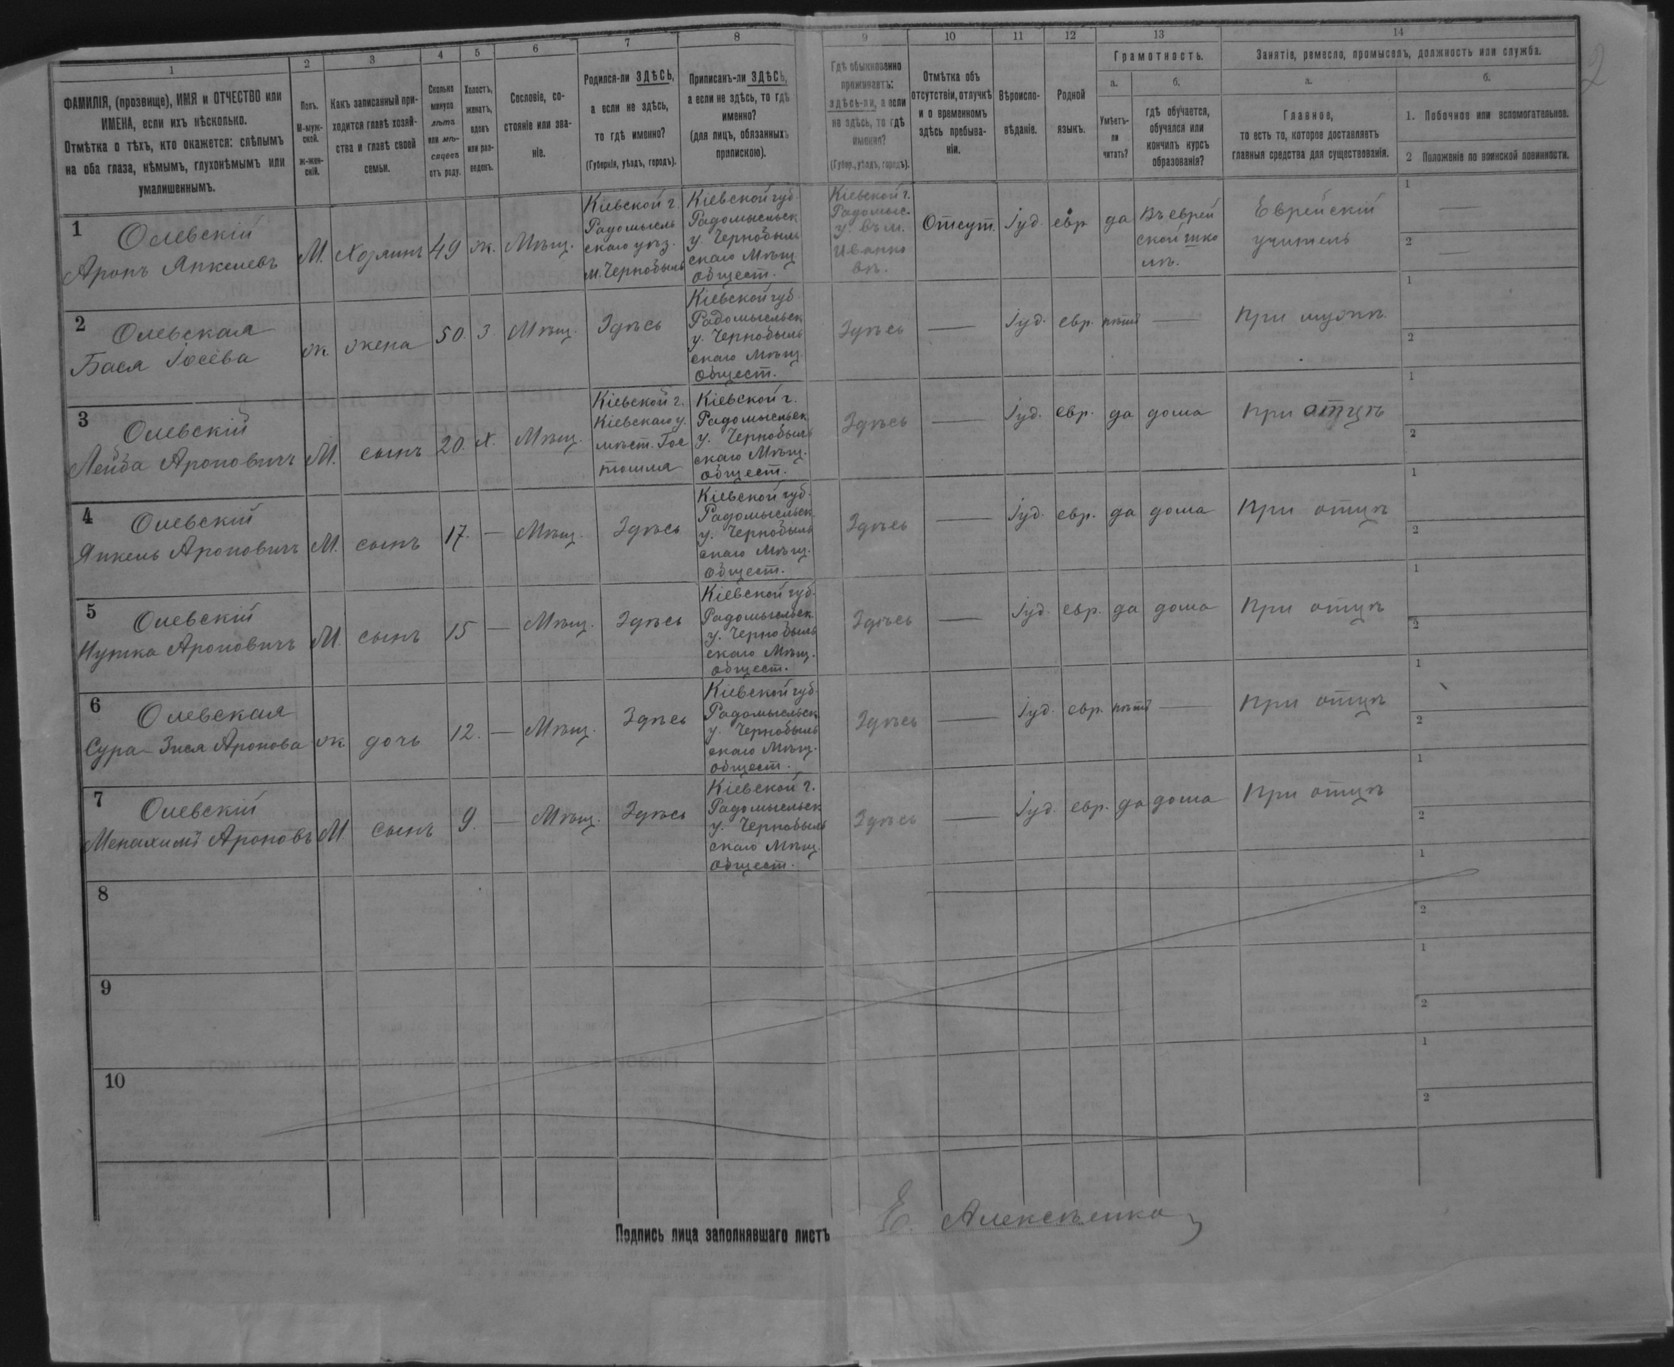 1 2 3 4 5 6 7 8 9 10 11 12 13 14
ФАМИЛІЯ, (прозвище), ИМЯ и ОТЧЕСТВО или
ИМЕНА, если ихъ нѣсколько.
Отмѣтка о тѣхъ, кто окажется: слѣпымъ
на оба глаза, нѣмымъ, глухонѣмымъ или
умалишеннымъ.
Полъ.
М-муж-
ской.
ж-жен-
скій.
Какъ записанный при-
ходится главѣ хозяй-
ства и главѣ своей
семьи.
Сколько
минуло
лѣтъ
или мѣ-
сяцевъ
отъ роду.
Холостъ,
женатъ,
вдовъ
или раз-
веденъ.
Сословіе, со-
стояніе или зва-
ніе.
Родился-ли ЗДѢСЬ,
а если не здѣсь,
то гдѣ именно?
(Губернія, уѣздъ, городъ).
Приписанъ-ли ЗДѢСЬ,
а если не здѣсь, то гдѣ
именно?
(для лицъ, обязанныхъ
припискою).
Гдѣ обыкновенно
проживаетъ:
здѣсь-ли, а если
не здѣсь, то гдѣ
именно?
(Губер., уѣздъ, городъ).
Отмѣтка объ
отсутствіи, отлучкѣ
и о временномъ
здѣсь пребыва-
ніи.
Вѣроиспо-
вѣданіе.
Родной
языкъ.
Грамотность.
а.
Умѣетъ-
ли
читать?
б.
гдѣ обучается,
обучался или
кончилъ курсъ
образованія?
Занятіе, ремесло, промыселъ, должность или служба.
а.
Главное,
то есть то, которое доставляетъ
главныя средства для существованія.
б.
1. Побочное или вспомогательное.
2 Положеніе по воинской повинности.
1
Олевскій
Аронъ Янкелевъ
М. Хозяинъ 49 ж. Мѣщ.
Кіевской г.
Радомысль
скаго уѣз.
м. Чернобыль
Кіевской губ.
Радомысльск
у. Чернобыль
скаго Мѣщ.
общест.
Кіевской г.
Радомысл.
у. въ м.
Иванко
вѣ.
Отсут. Іуд. евр. да
Въ еврей
ской шко
лѣ.
Еврейскій
учитель
1
2
2
Олевская
Бася Іосева
ж. жена 50 З. Мѣщ. Здѣсь
Кіевской губ.
Радомысльск
у. Чернобыль
скаго Мѣщ.
общест.
Здѣсь — Іуд. евр. нѣтъ — При мужѣ
1
2
3
Олевскій
Лейба Ароновичъ
М. сынъ 20. Х. Мѣщ.
Кіевской г.
Кіевскаго у.
мѣст. Гос
томля
Кіевской г.
Радомысльск
у. Чернобыль
скаго Мѣщ.
общест.
Здѣсь — Іуд. евр. да дома При отцѣ
1
2
4
Олевскій
Янкель Ароновичъ
М. сынъ 17. — Мѣщ. Здѣсь
Кіевской губ.
Радомысльск
у. Чернобыль
скаго Мѣщ.
общест.
Здѣсь — Іуд. евр. да дома При отцѣ
1
2
5
Олевскій
Нутка Ароновичъ
М. сынъ 15 — Мѣщ. Здѣсь
Кіевской губ.
Радомысльск
у. Чернобыль
скаго Мѣщ.
общест.
Здѣсь — Іуд. евр. да дома При отцѣ
1
2
6
Олевская
Сура-Зися Аронова
ж. дочь 12. — Мѣщ. Здѣсь
Кіевской губ.
Радомысльск
у. Чернобыль
скаго Мѣщ.
общест.
Здѣсь — Іуд. евр. нѣтъ — При отцѣ
1
2
7
Олевскій
Менахимъ Ароновъ
М сынъ 9. — Мѣщ. Здѣсь
Кіевской г.
Радомысльск
у. Чернобыль
скаго Мѣщ.
общест.
Здѣсь — Іуд. евр. да дома При отцѣ
1
2
8
1
2
9
1
2
10
1
2
Подпись лица заполнявшаго листъ
Е. Алексѣенко